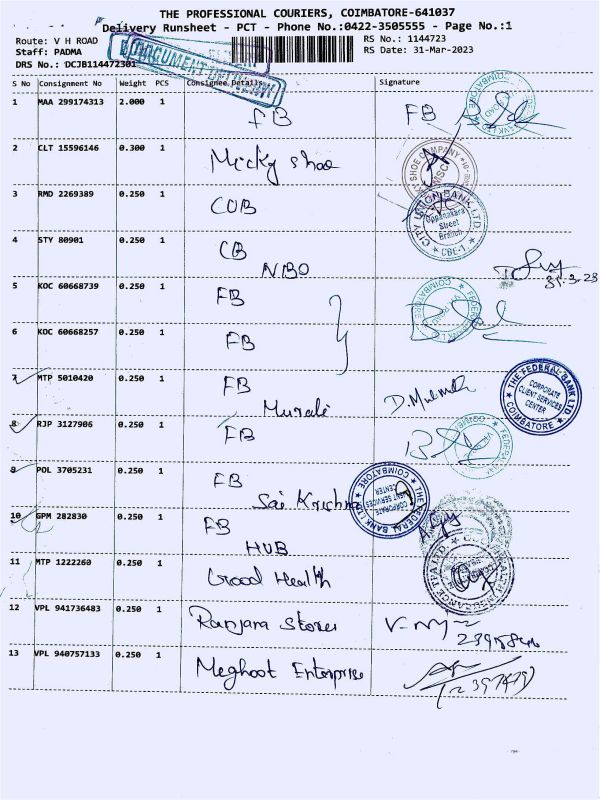 THE PROFESSIONAL COURIERS, COIMBATORE-641037
Delivery Runsheet - PCT - Phone No.:0422-3505555 - Page No.:1
Route: V H ROAD RS No.: 1144723
Staff: PADMA RS Date: 31-Mar-2023
DRS No.: DCJB114472301
DOCUMENT
S No Consignment No Weight PCS Consignee Details Signature
1 MAA 299174313 2.000 1 FB FB
2 CLT 15596146 0.300 1 Micky Shoe
SHOE COMPANY
3 RMD 2269389 0.250 1 CUB
CITY UNION BANK LTD.
Oppanakara
Street
Branch
CBE-1.
4 STY 80901 0.250 1 CB
NBO
31.3.23
5 KOC 60668739 0.250 1 FB
6 KOC 60668257 0.250 1 FB
7 MTP 5010420 0.250 1 FB
Murali
THE FEDERAL BANK LTD
CORPORATE
CLIENT SERVICES
CENTER
COIMBATORE
8 RJP 3127906 0.250 1 FB
9 POL 3705231 0.250 1 FB
Sai Krishna
THE FEDERAL BANK LTD
COIMBATORE
10 GPM 282830 0.250 1 FB
HUB
11 MTP 1222260 0.250 1 Good Health
12 VPL 941736483 0.250 1 Ranjana Stores
13 VPL 940757133 0.250 1 Meghoot Enterprise